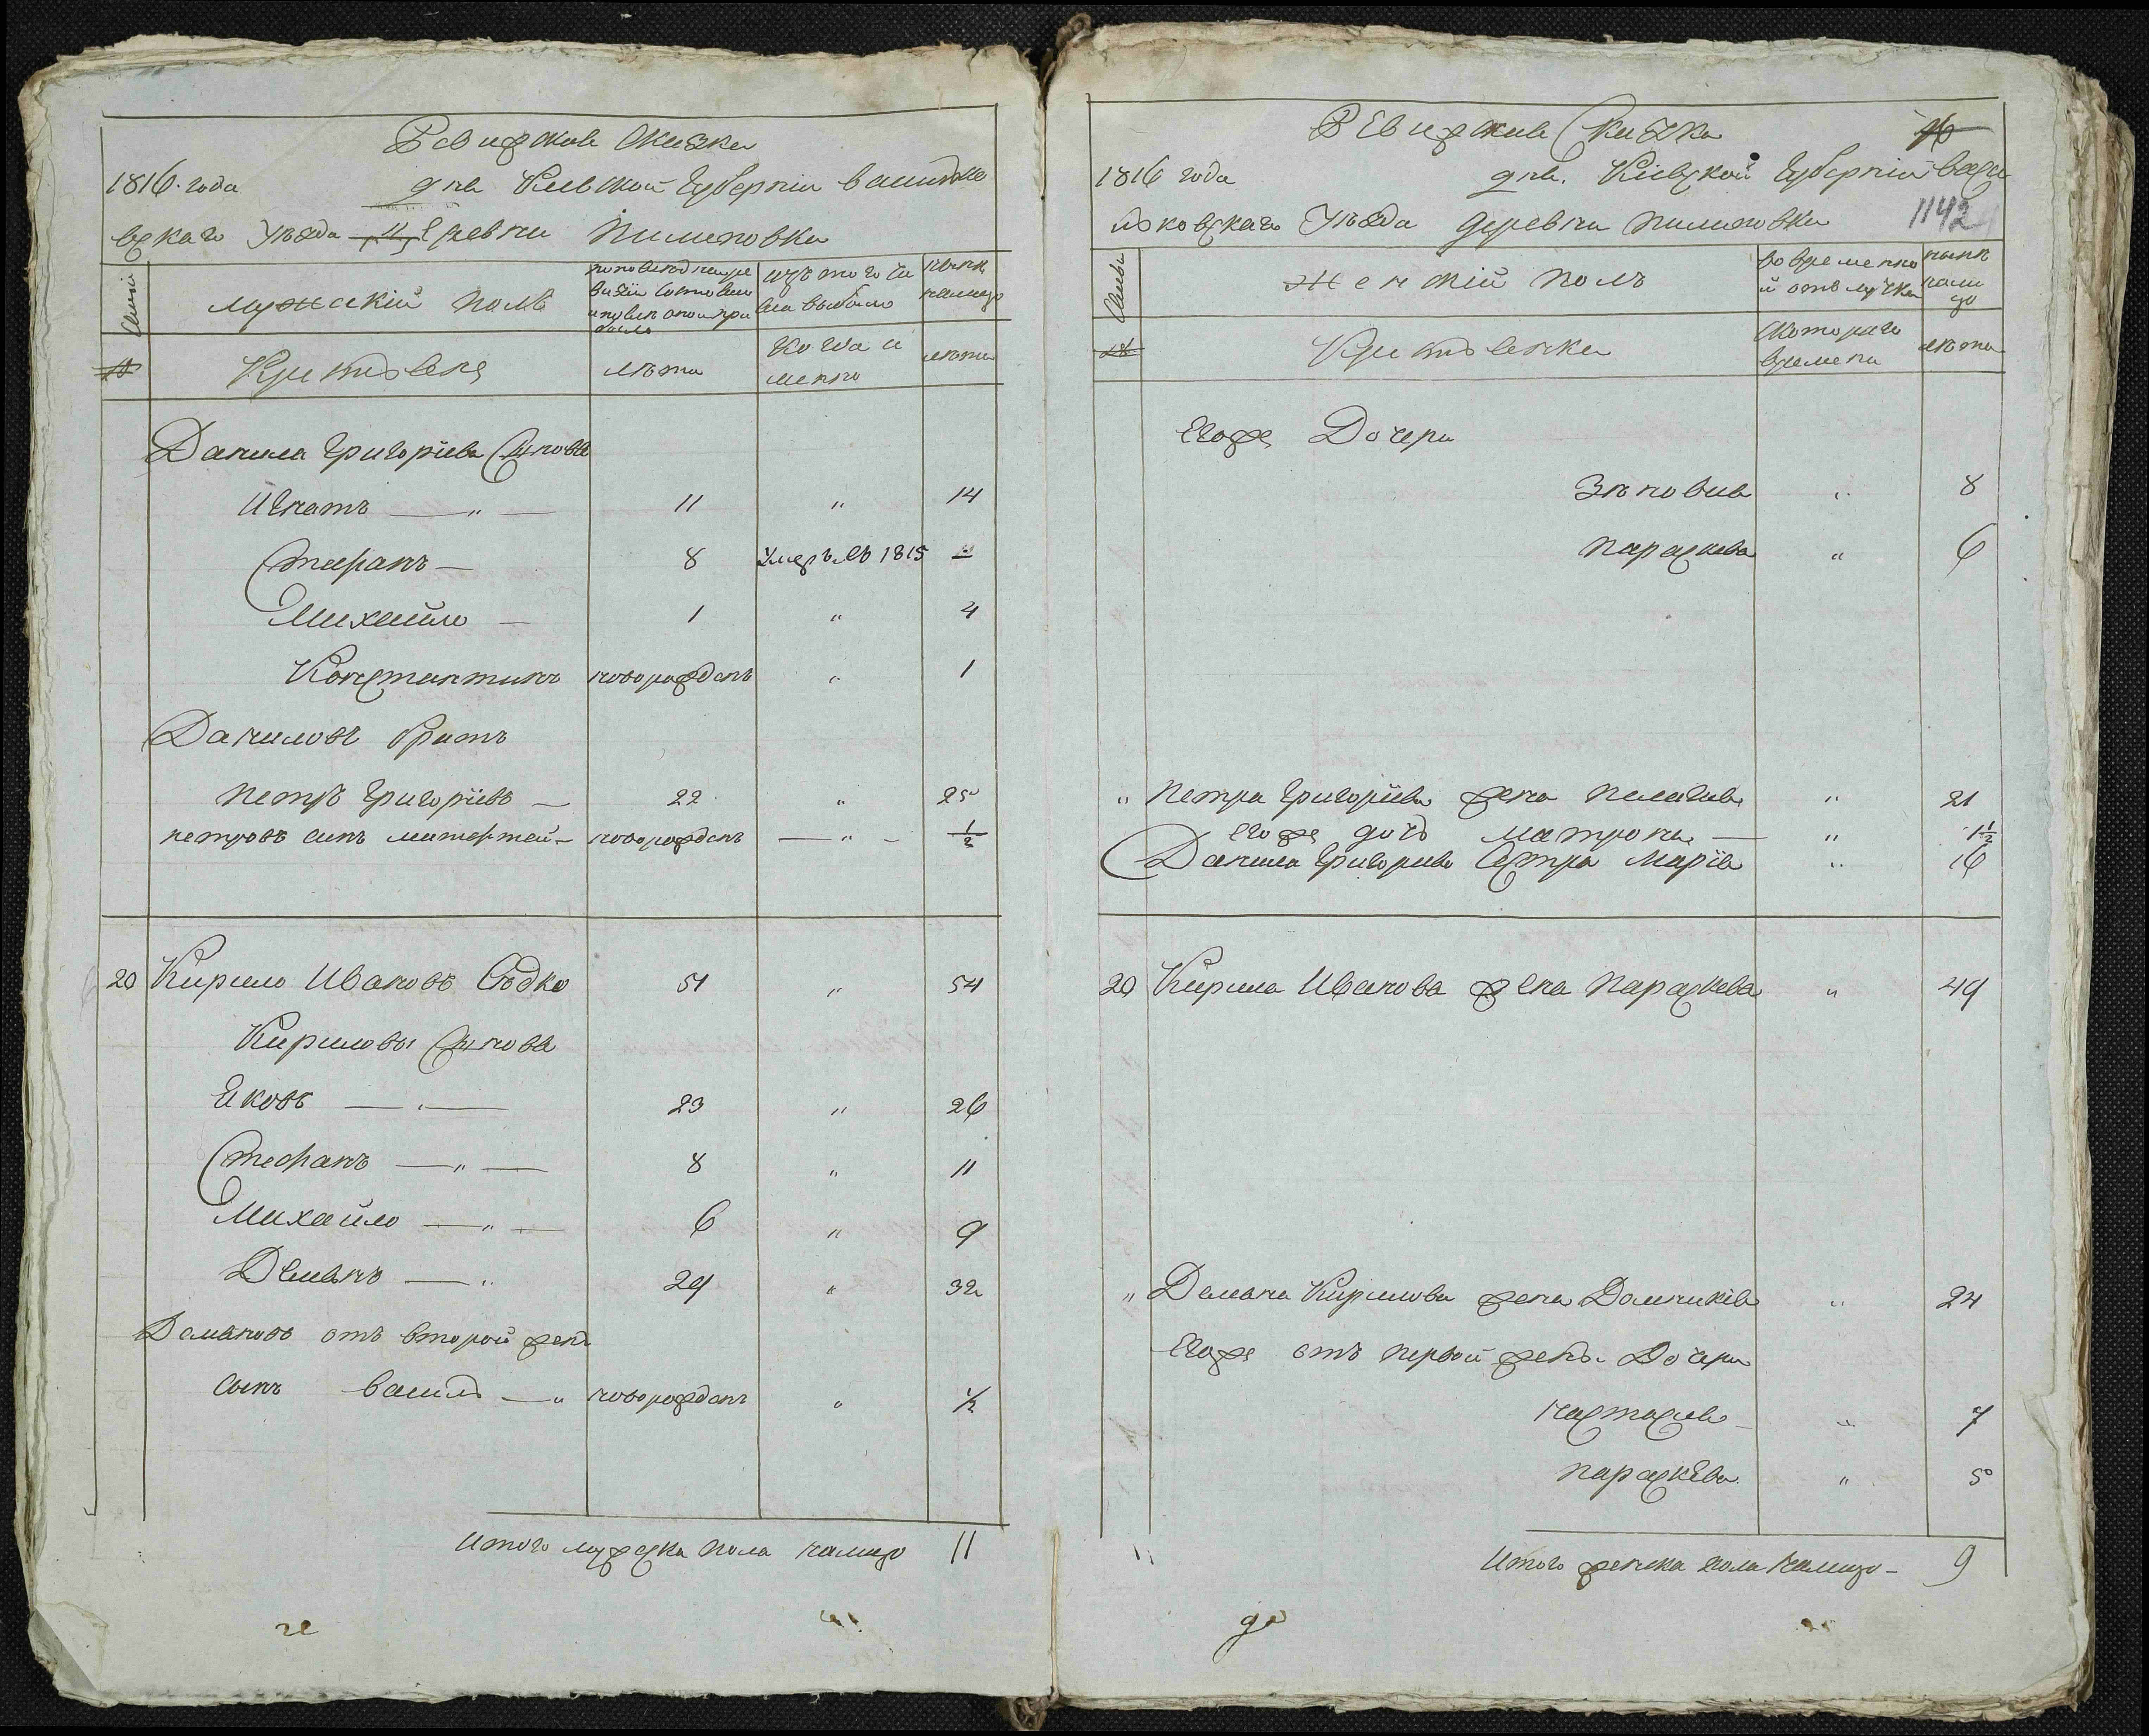 Ревизская Сказка
1816 года дня Киевской Губернїи василко
вскаго Уѣзда деревни Пилиповки
Семьи
мужескїй полъ
по последней ре
визїи состояло
и послѣ оной при
было
изъ того чи
сла выбыло
нынѣ
налицо
19
Крестьяня
лѣта
когда и
менно
лѣта
Данила Григорїева Синовя
Игнатъ — „ — 11 „ 14
Стефанъ — 8 умеръ въ 1815 —
Михайло — 1 „ 4
Константинъ новорожденъ „ 1
Даниловъ братъ
Петръ Григорїевъ — 22 „ 25
петровъ синъ матефтей — новорожденъ — „ — ½
20 Кирило Ивановъ Содко 51 „ 54
Кириловы Синовя
Яковъ — „ — 23 „ 26
Стефанъ — „ — 8 „ 11
Михайло — „ — 6 „ 9
Демянъ — „ 29 „ 32
Демяновъ отъ второй жены
сынъ василь — „ новорожденъ „ ½
Итого мужеска пола налицо 11
Ревизская Сказка 76
1816 года дня Кїевской Губернїи васи
лковскаго Уѣзда деревни пилиповки 1142
Семьи
женскїй полъ
во временно
й отлучке
нынѣ
нали
цо
Крестьянки
с котораго
времени
лѣта
Егоже Дочери
Зѣновия „ 8
Параскева „ 6
„ Петра Григорїева жена Пелагия „ 21
Егоже дочь матрона — „ 1½
Данила Григорива Сестра Марїя „ 16
20 Кирила Иванова жена Параскева „ 49
„ Демяна Кирилова жена Домникїя „ 24
Егоже отъ первой жены Дочери
настасия — „ 7
параскева „ 5
Итого женска пола налицо — 9